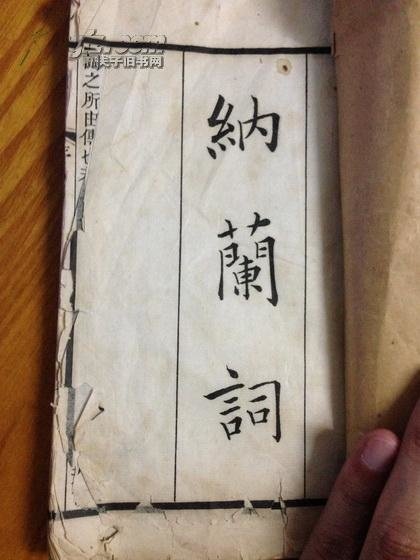 納蘭詞
之所由傳也
孔夫子旧书网